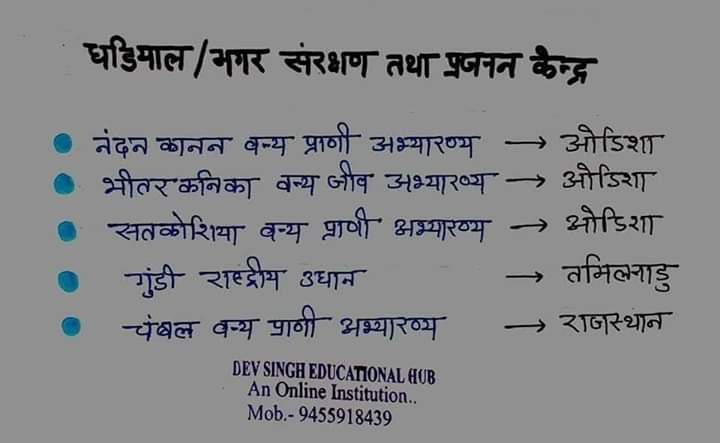 घडियाल/मगर संरक्षण तथा प्रजनन केन्द्र
नंदन कानन वन्य प्राणी अभ्यारण्य → ओडिशा
भीतर कनिका वन्य जीव अभ्यारण्य → ओडिशा
सतकोशिया वन्य प्राणी अभ्यारण्य → ओडिशा
गुंडी राष्ट्रीय उधान → तमिलनाडु
चंबल वन्य प्राणी अभ्यारण्य → राजस्थान
DEV SINGH EDUCATIONAL HUB
An Online Institution..
Mob.- 9455918439